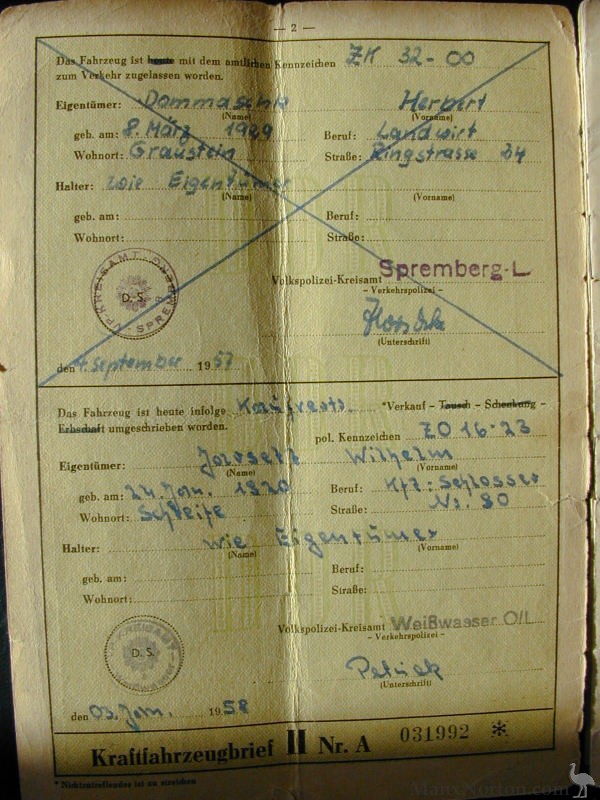 — 2 —
Das Fahrzeug ist heute mit dem amtlichen Kennzeichen ZK 32-00
zum Verkehr zugelassen worden.
Eigentümer: Dommaschk Herbert
(Name) (Vorname)
geb. am: 8. März 1929 Beruf: Landwirt
Wohnort: Graustein Straße: Ringstrasse 34
Halter: wie Eigentümer
(Name) (Vorname)
geb. am: Beruf:
Wohnort: Straße:
Volkspolizei-Kreisamt Spremberg-L
– Verkehrspolizei –
(Unterschrift)
D. S.
den 4. September 1957
Das Fahrzeug ist heute infolge *Verkauf – Tausch – Schenkung –
Erbschaft umgeschrieben worden.
pol. Kennzeichen ZO 16-23
Eigentümer: Wilhelm
(Name) (Vorname)
geb. am: 24. Jan. 1920 Beruf: Kfz.-Schlosser
Wohnort: Schleife Straße: Nr. 80
Halter: wie Eigentümer
(Name) (Vorname)
geb. am: Beruf:
Wohnort: Straße:
Volkspolizei-Kreisamt Weißwasser O/L
– Verkehrspolizei –
D. S.
(Unterschrift)
den 03. Jan. 1958
Kraftfahrzeugbrief II Nr. A 031992 *
* Nichtzutreffendes ist zu streichen
MaitzNorton.com